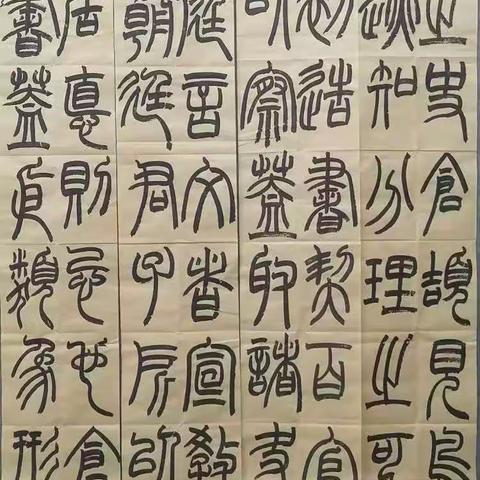 之史倉頡見鳥
迹知分理之可
初造書契百官
以察蓋取諸夬
庭言文者宣教
朝廷君子所以
居悳則忌也倉
書蓋依類象形